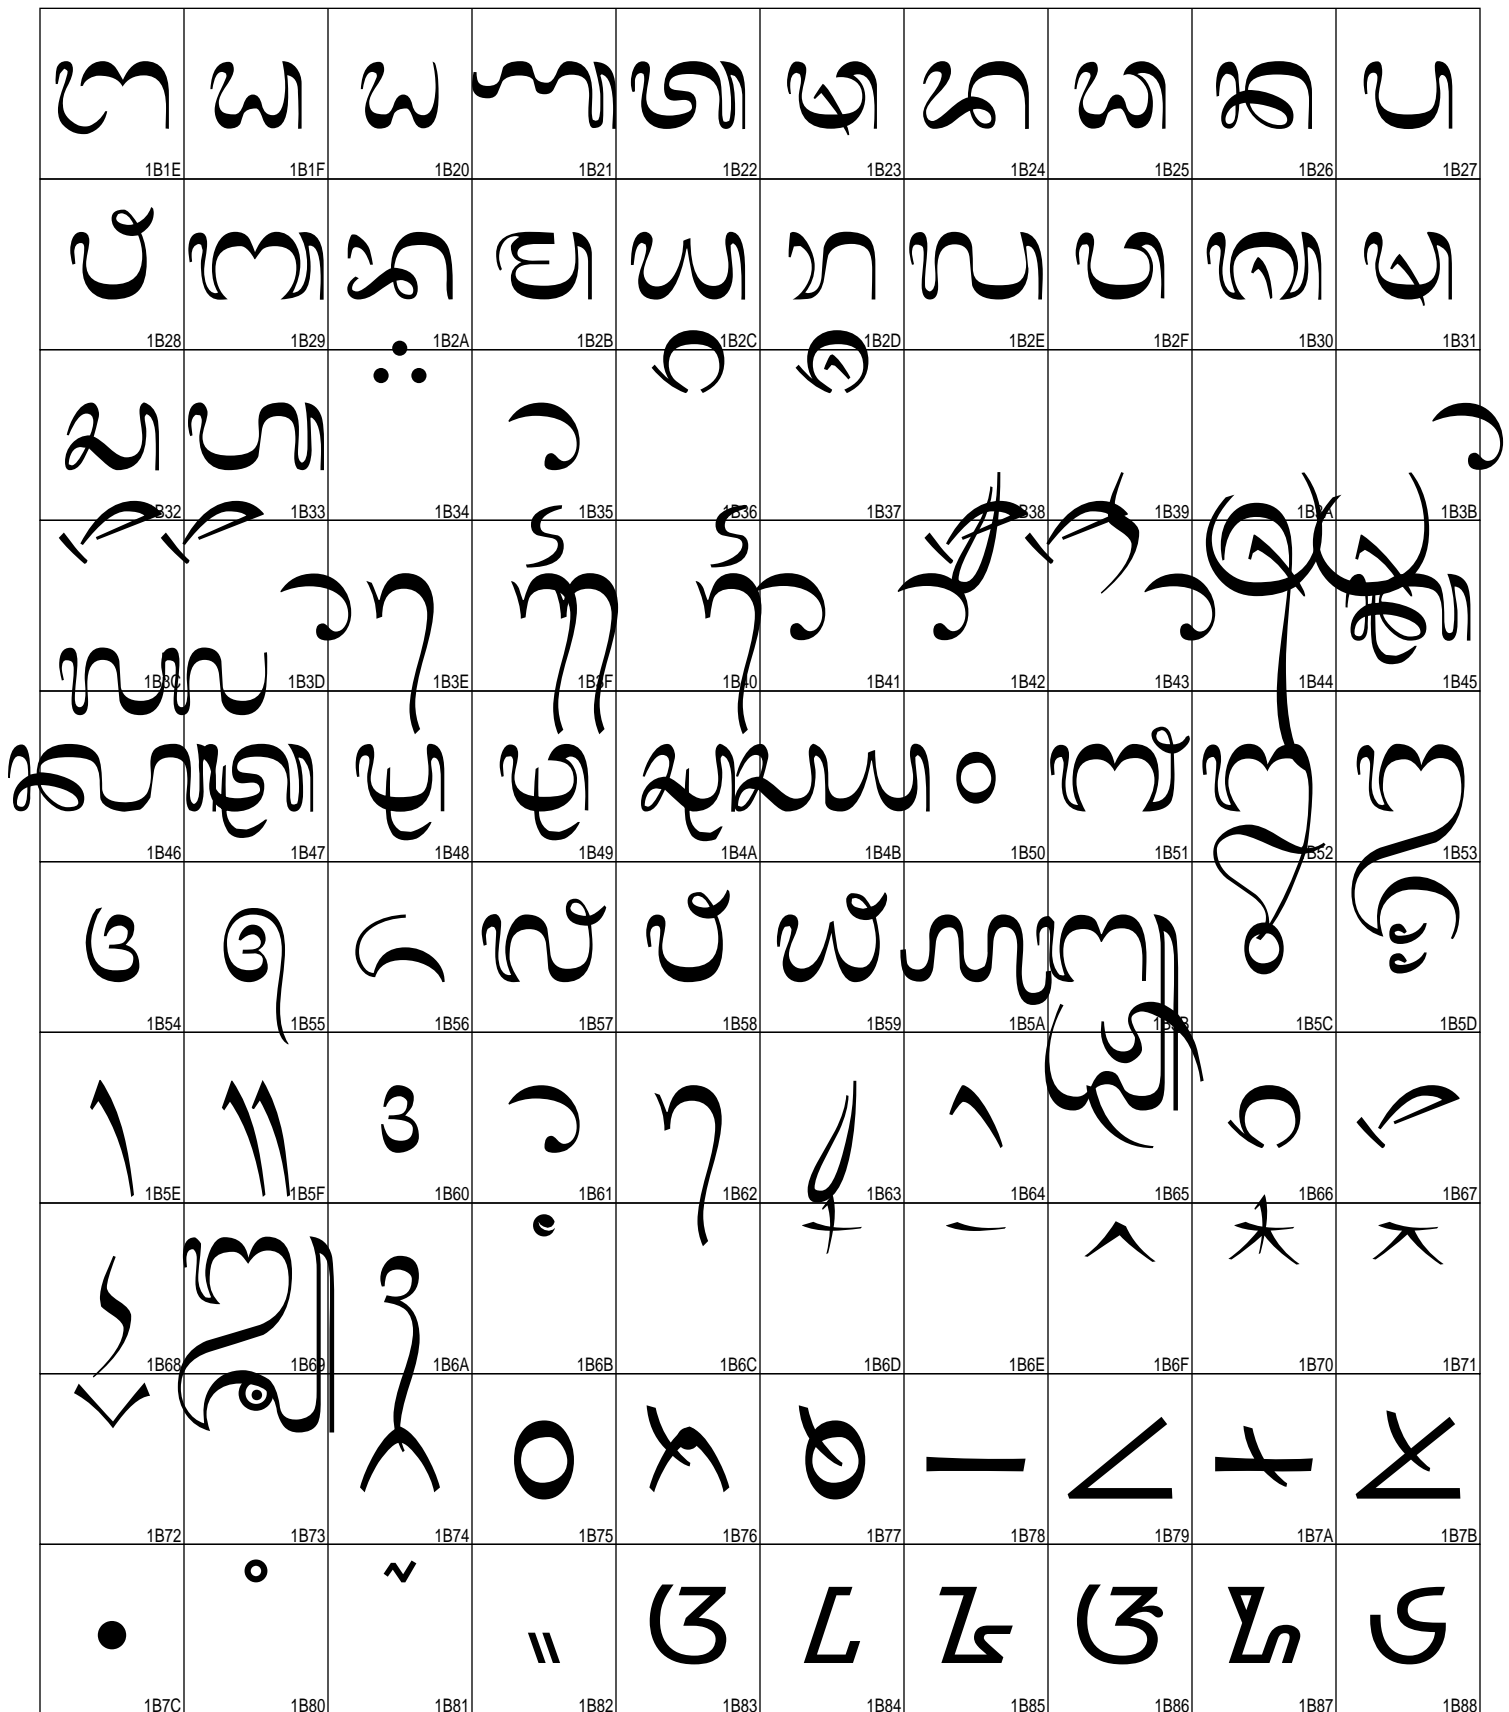 ᬞ ᬟ ᬠ ᬡ ᬢ ᬣ ᬤ ᬥ ᬦ ᬧ
1B1E 1B1F 1B20 1B21 1B22 1B23 1B24 1B25 1B26 1B27
ᬨ ᬩ ᬪ ᬫ ᬬ ᬭ ᬮ ᬯ ᬰ ᬱ
1B28 1B29 1B2A 1B2B 1B2C 1B2D 1B2E 1B2F 1B30 1B31
ᬲ ᬳ ᬴ ᬵ ᬶ ᬷ ᬸ ᬹ ᬺ ᬻ
1B32 1B33 1B34 1B35 1B36 1B37 1B38 1B39 1B3A 1B3B
ᬼ ᬽ ᬾ ᬿ ᭀ ᭁ ᭂ ᭃ ᭄ ᭅ
1B3C 1B3D 1B3E 1B3F 1B40 1B41 1B42 1B43 1B44 1B45
ᭆ ᭇ ᭈ ᭉ ᭊ ᭋ ᭐ ᭑ ᭒ ᭓
1B46 1B47 1B48 1B49 1B4A 1B4B 1B50 1B51 1B52 1B53
᭔ ᭕ ᭖ ᭗ ᭘ ᭙ ᭚ ᭛ ᭜ ᭝
1B54 1B55 1B56 1B57 1B58 1B59 1B5A 1B5B 1B5C 1B5D
᭞ ᭟ ᭠ ᭡ ᭢ ᭣ ᭤ ᭥ ᭦ ᭧
1B5E 1B5F 1B60 1B61 1B62 1B63 1B64 1B65 1B66 1B67
᭨ ᭩ ᭪ ᭫ ᭬ ᭭ ᭮ ᭯ ᭰ ᭱
1B68 1B69 1B6A 1B6B 1B6C 1B6D 1B6E 1B6F 1B70 1B71
᭲ ᭳ ᭴ ᭵ ᭶ ᭷ ᭸ ᭹ ᭺ ᭻
1B72 1B73 1B74 1B75 1B76 1B77 1B78 1B79 1B7A 1B7B
᭼ ᮀ ᮁ ᮂ ᮃ ᮄ ᮅ ᮆ ᮇ ᮈ
1B7C 1B80 1B81 1B82 1B83 1B84 1B85 1B86 1B87 1B88